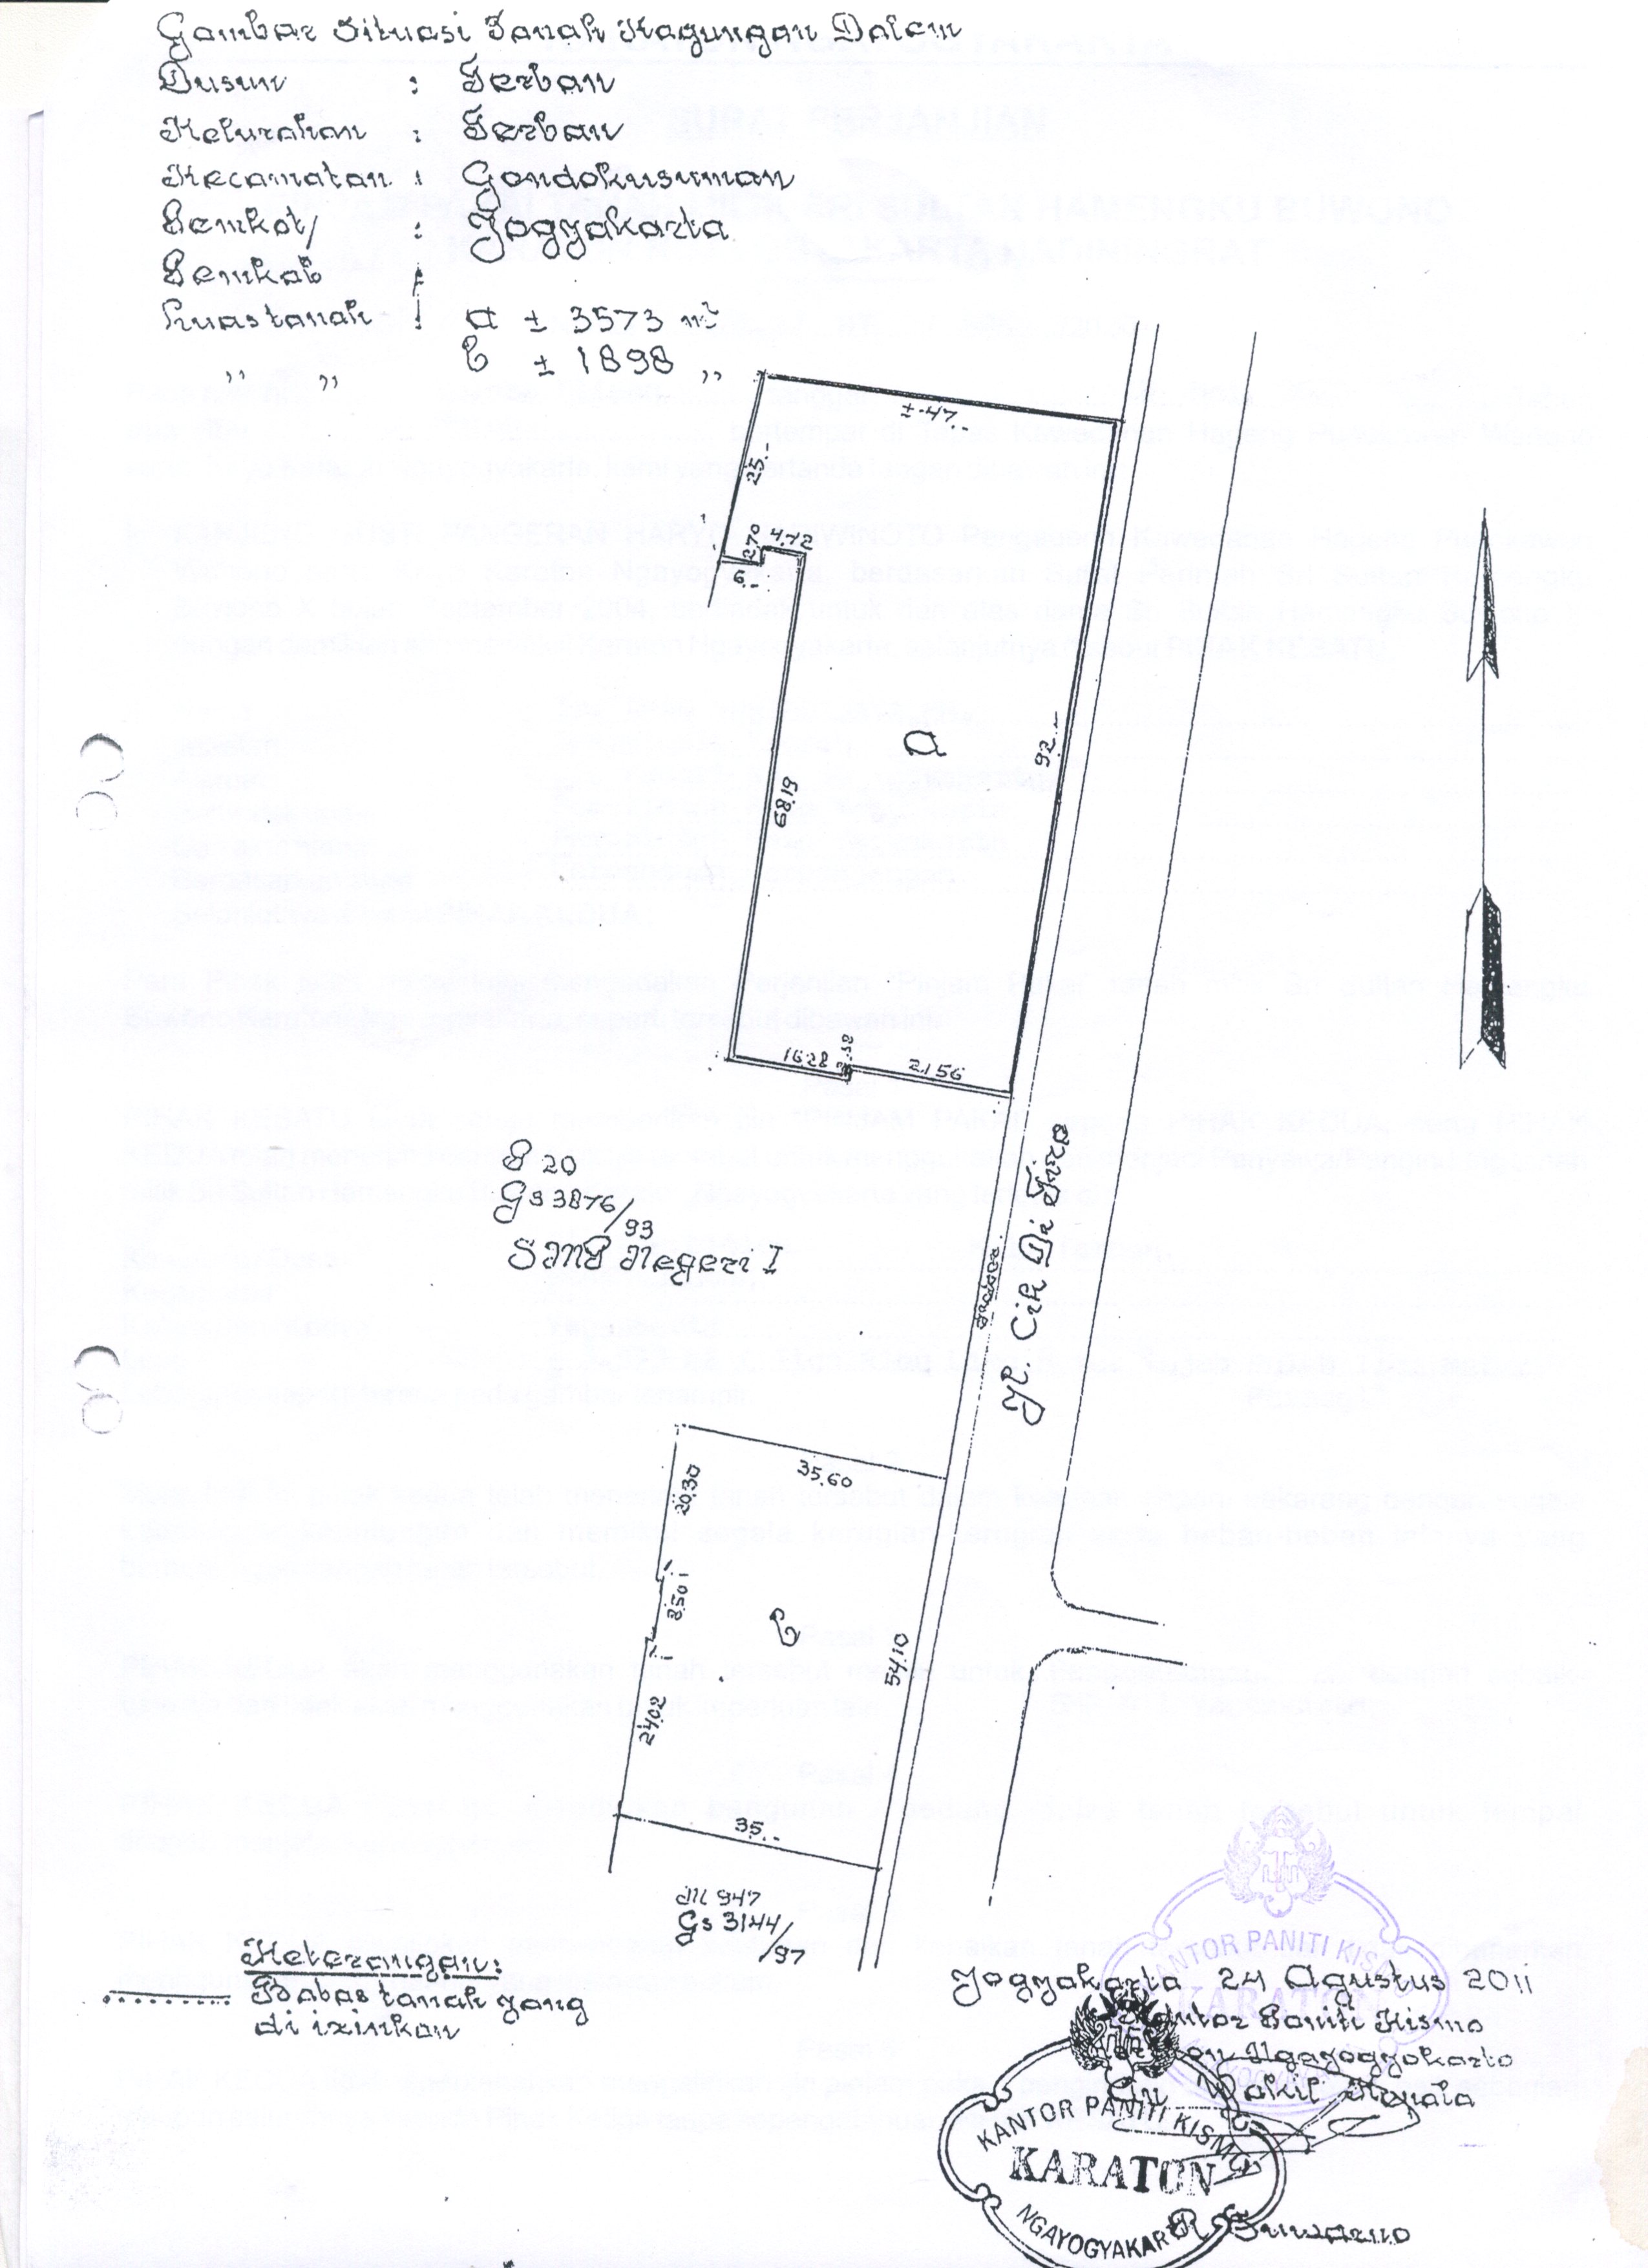 Gambar Situasi Tanah Kagungan Dalem
Dusun : Terban
Kelurahan : Terban
Kecamatan : Gondokusuman
Pemkot/ : Jogyakarta
Pemkab :
Luas tanah : a ± 3573 m²
,, ,, b ± 1898 ,,
± 47.-
25.-
2.70
4.42
6.-
a
92.-
68.19
16.28
21.56
P 20
Gs 3876/93
SMP Negeri I
Jl. Cik Di Tiro
trotoar
35.60
20.30
8.50
b
24.02
54.10
35.-
M 947
Gs 3144/97
Keterangan:
Babas tanah yang
di izinkan
Jogyakarta 24 Agustus 2011
Kantor Paniti Kismo
Karaton Ngayogyokarto
Wakil
KANTOR PANITI KISMO
KARATON
KANTOR PANITI KISMO
KARATON
NGAYOGYAKAR